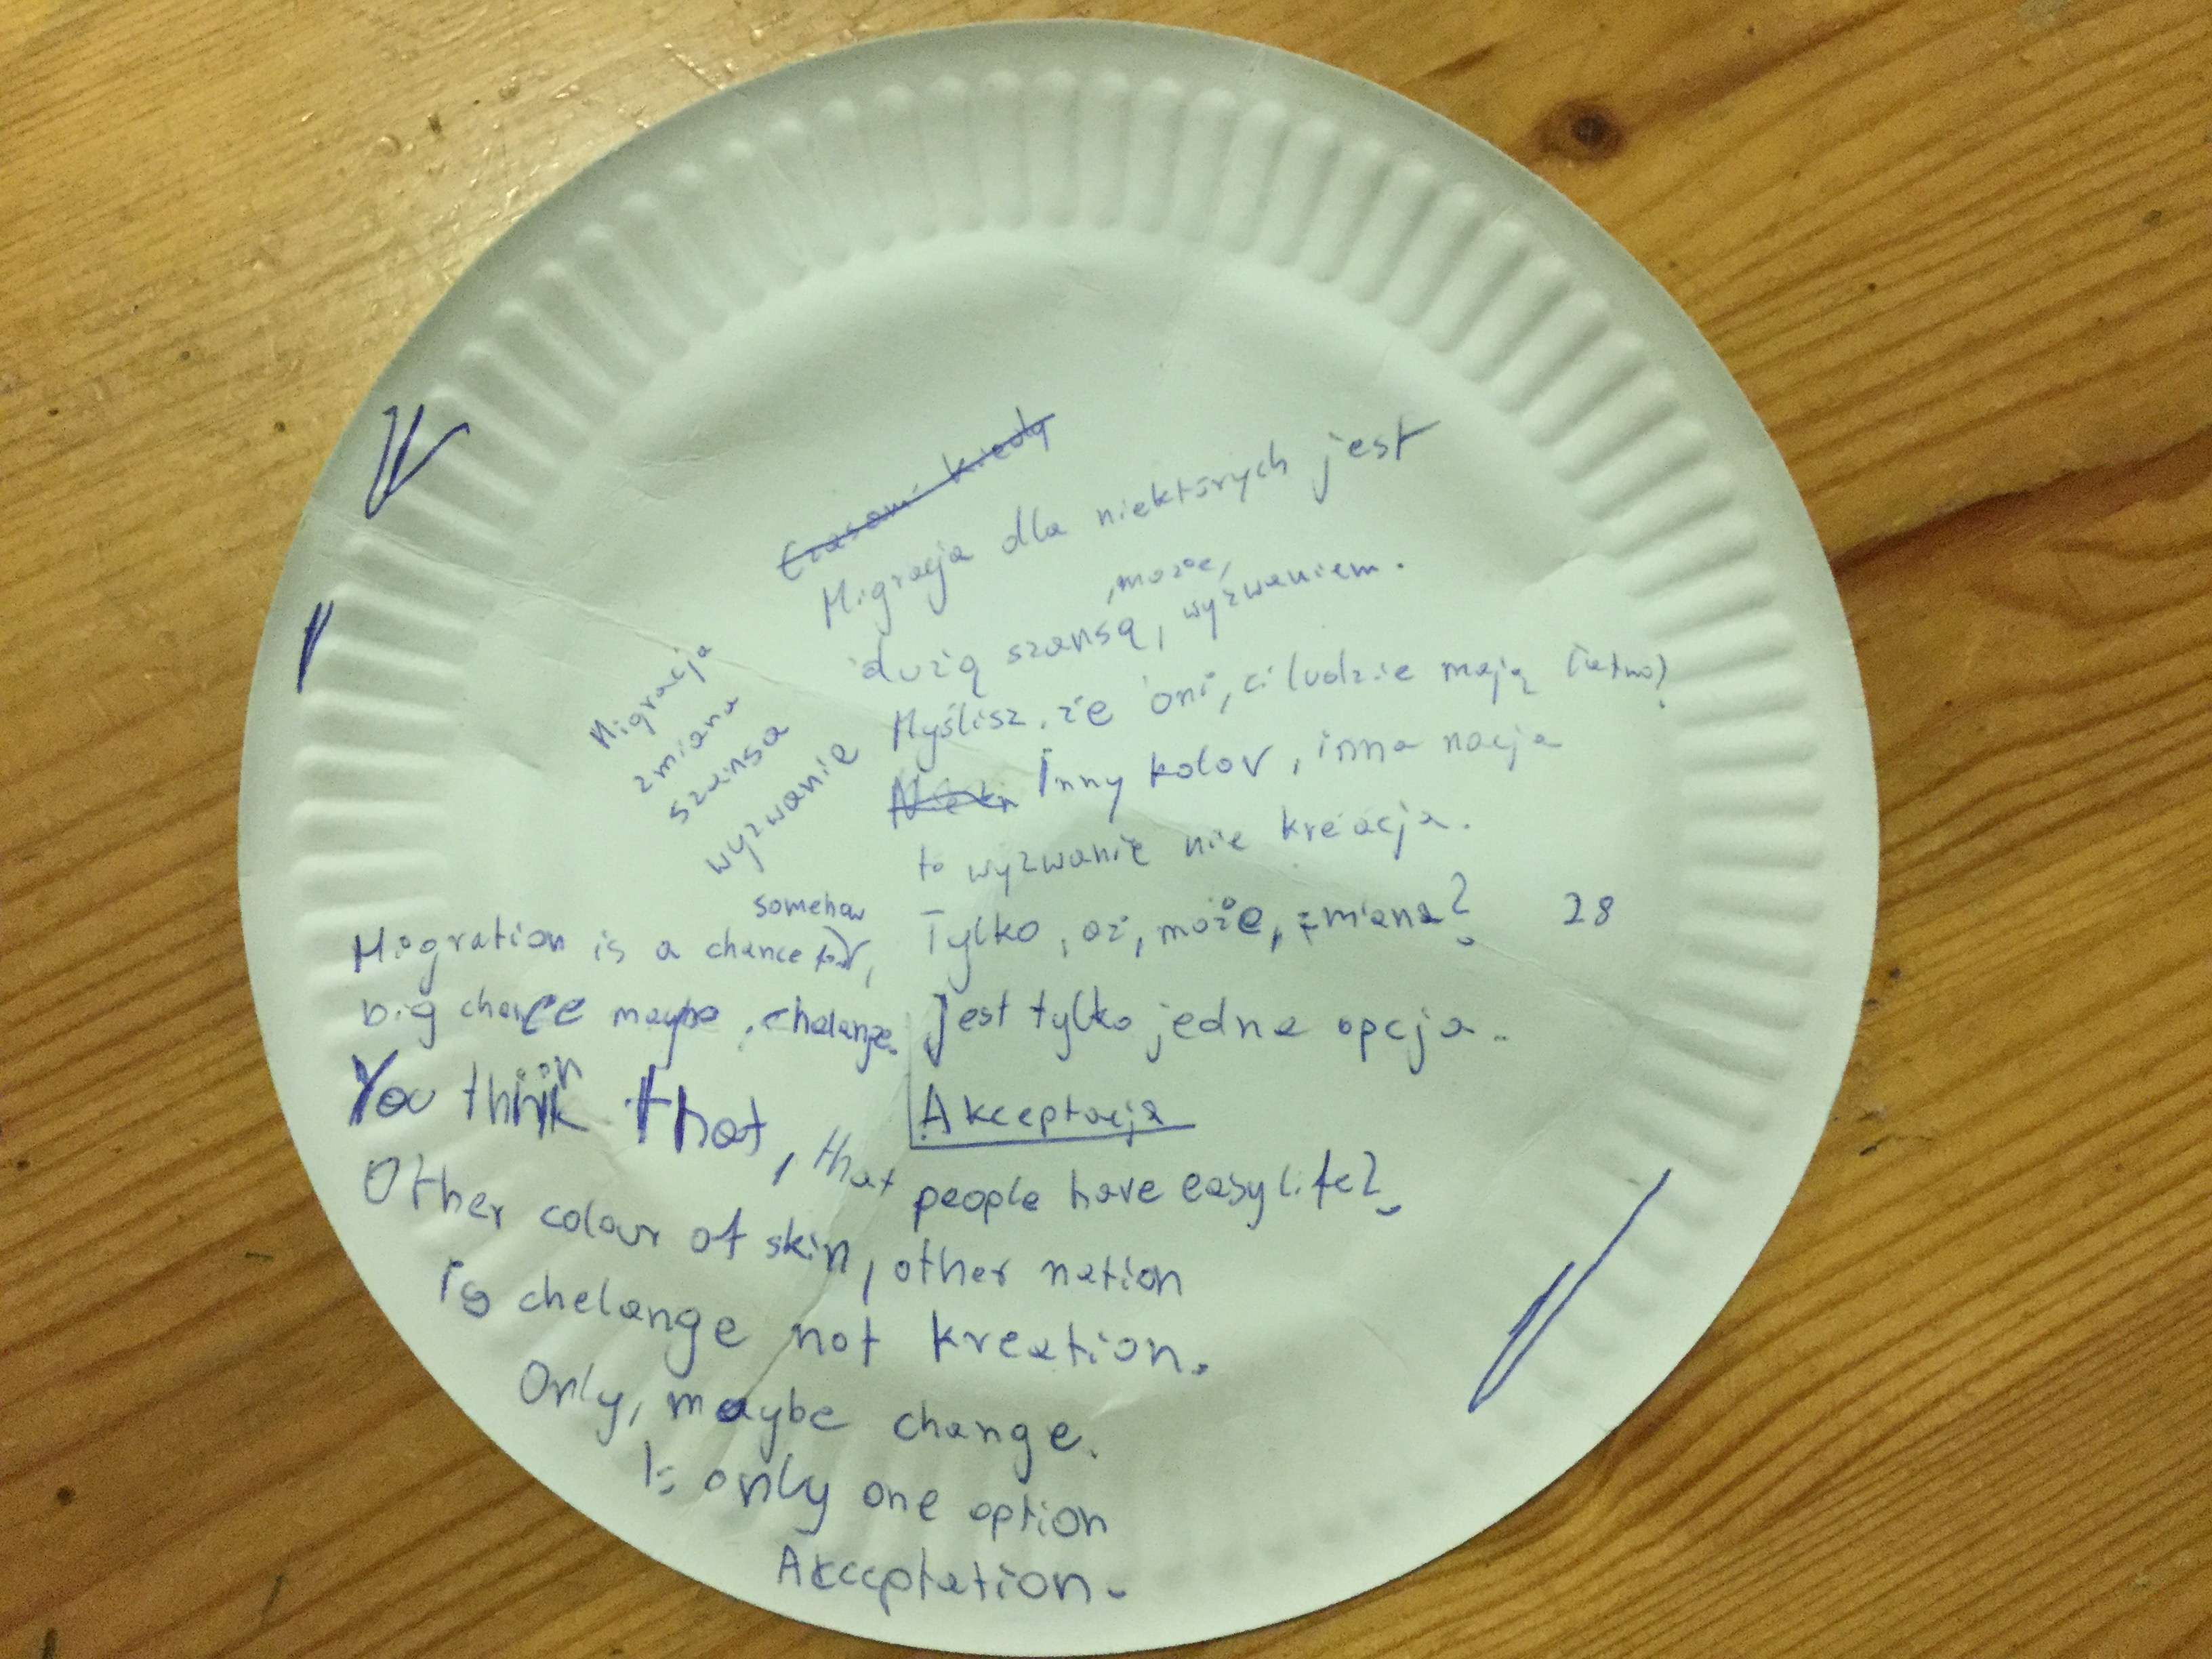 Czasami kiedy
Migracja dla niektórych jest
dużą szansą, może, wyzwaniem.
Myślisz, że oni, ci ludzie mają łatwo?
Inny kolor, inna nacja
to wyzwanie nie kreacja.
Tylko, aż, może, zmiana? 28
Jest tylko jedna opcja.
Akceptacja
Migracja
zmiana
szansa
wyzwanie
Migration is a chance somehow,
big chance maybe, chelange.
You think that, that people have easy life?
Other colour of skin, other nation
is chelange not kreation.
Only, maybe change.
Is only one option
Akceptation.